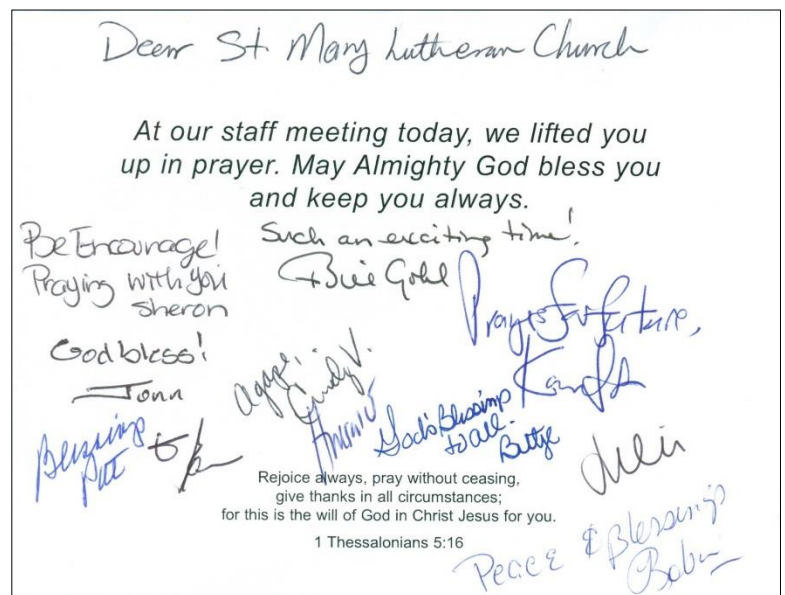 Dear St. Mary Lutheran Church
At our staff meeting today, we lifted you
up in prayer. May Almighty God bless you
and keep you always.
Be Encourage!
Praying with you
Sheron
Such an exciting time!
Bill Gohl
Prayers for future,
God bless!
Agape,
Cindy V.
God's Blessings
to all.
Blessings
Patti
Rejoice always, pray without ceasing,
give thanks in all circumstances;
for this is the will of God in Christ Jesus for you.
1 Thessalonians 5:16
Peace & Blessings